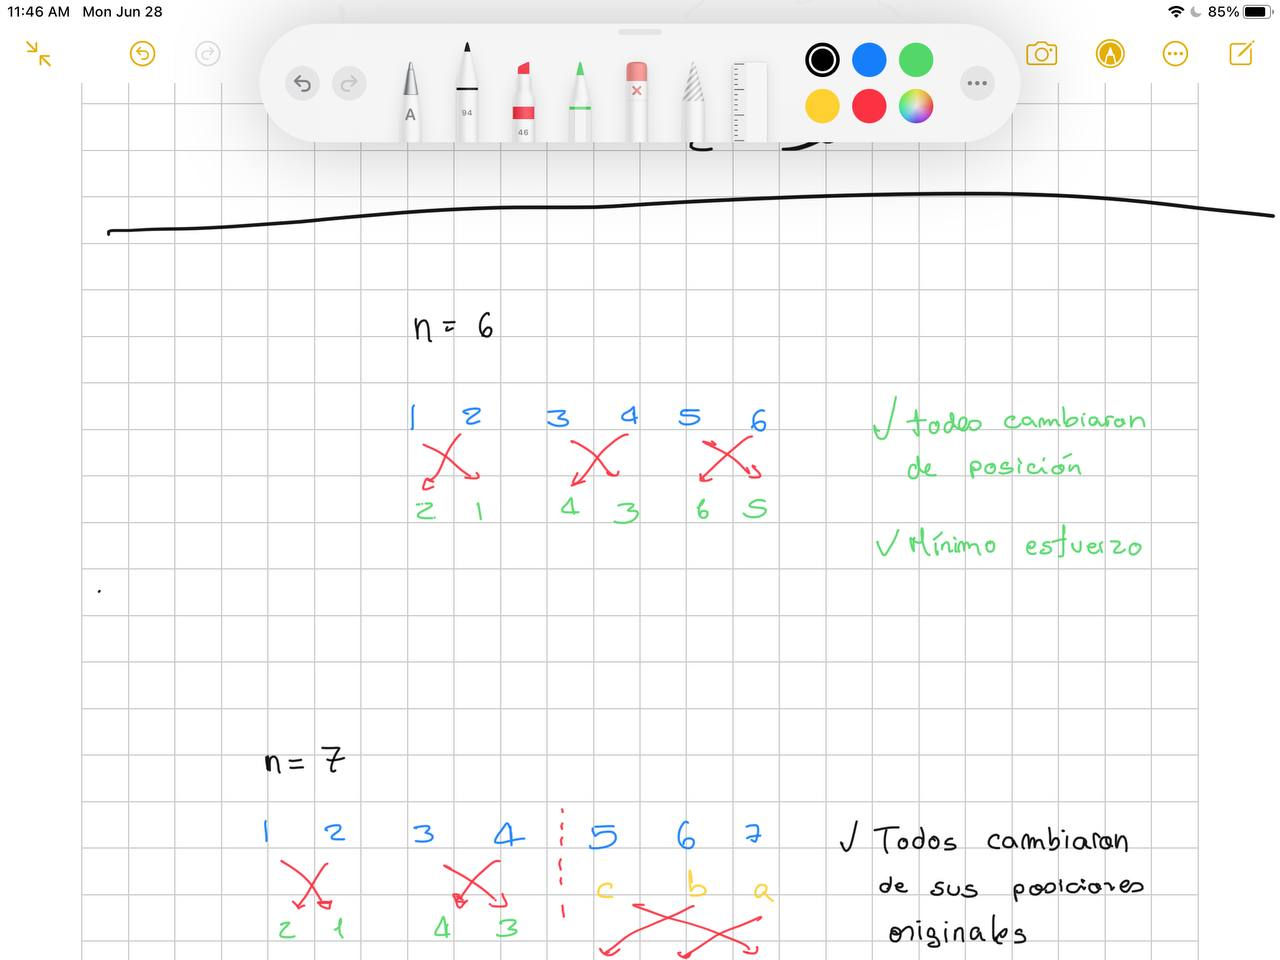 11:46 AM Mon Jun 28
85%
A
94
46
n = 6
1 2 3 4 5 6
2 1 4 3 6 5
✓ todos cambiaron
de posición
✓ Mínimo esfuerzo
n = 7
1 2 3 4 5 6 7
c b a
2 1 4 3
✓ Todos cambiaron
de sus posiciones
originales